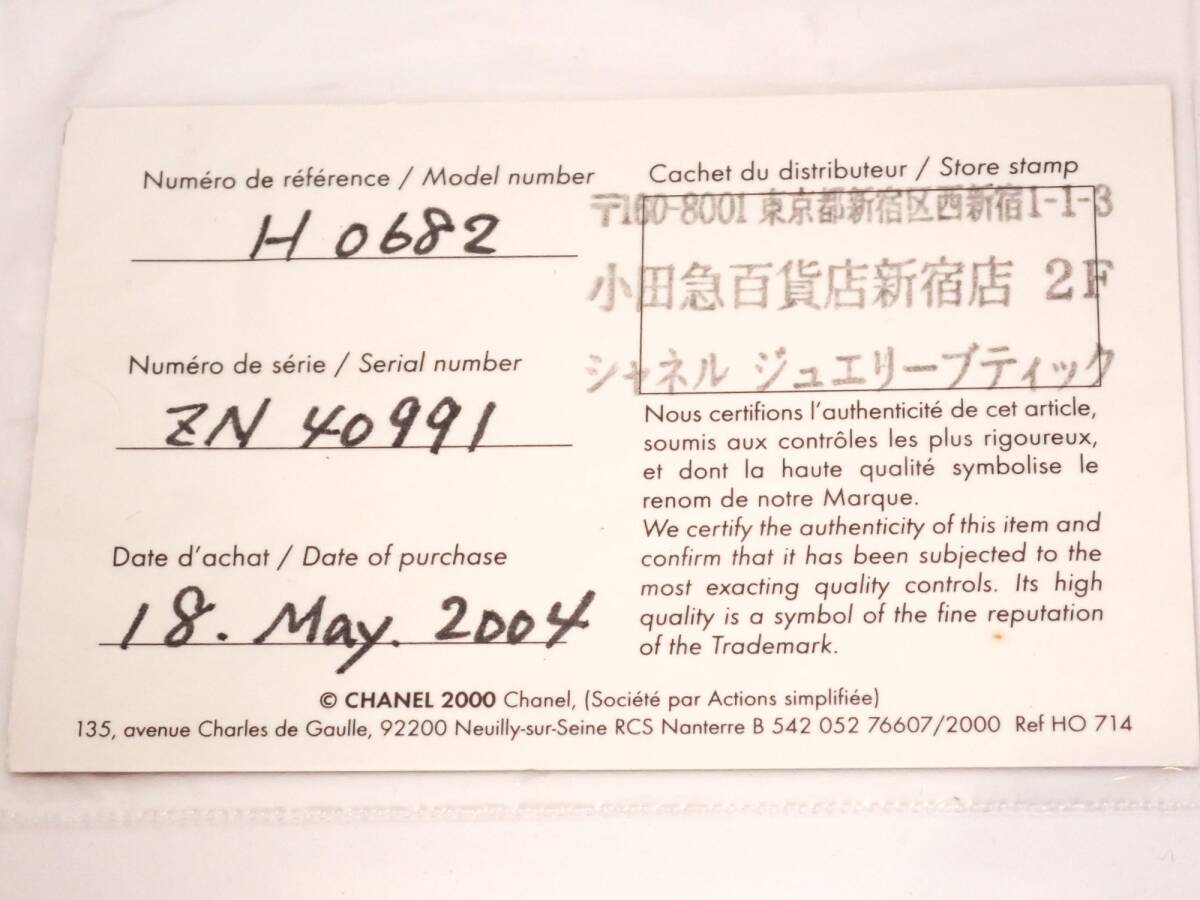 Numéro de référence / Model number
H 0682
Numéro de série / Serial number
ZN 40991
Date d'achat / Date of purchase
18. May. 2004
Cachet du distributeur / Store stamp
〒160-8001 東京都新宿区西新宿1-1-3
小田急百貨店新宿店 2F
シャネル ジュエリーブティック
Nous certifions l'authenticité de cet article,
soumis aux contrôles les plus rigoureux,
et dont la haute qualité symbolise le
renom de notre Marque.
We certify the authenticity of this item and
confirm that it has been subjected to the
most exacting quality controls. Its high
quality is a symbol of the fine reputation
of the Trademark.
© CHANEL 2000 Chanel, (Société par Actions simplifiée)
135, avenue Charles de Gaulle, 92200 Neuilly-sur-Seine RCS Nanterre B 542 052 76607/2000 Ref HO 714